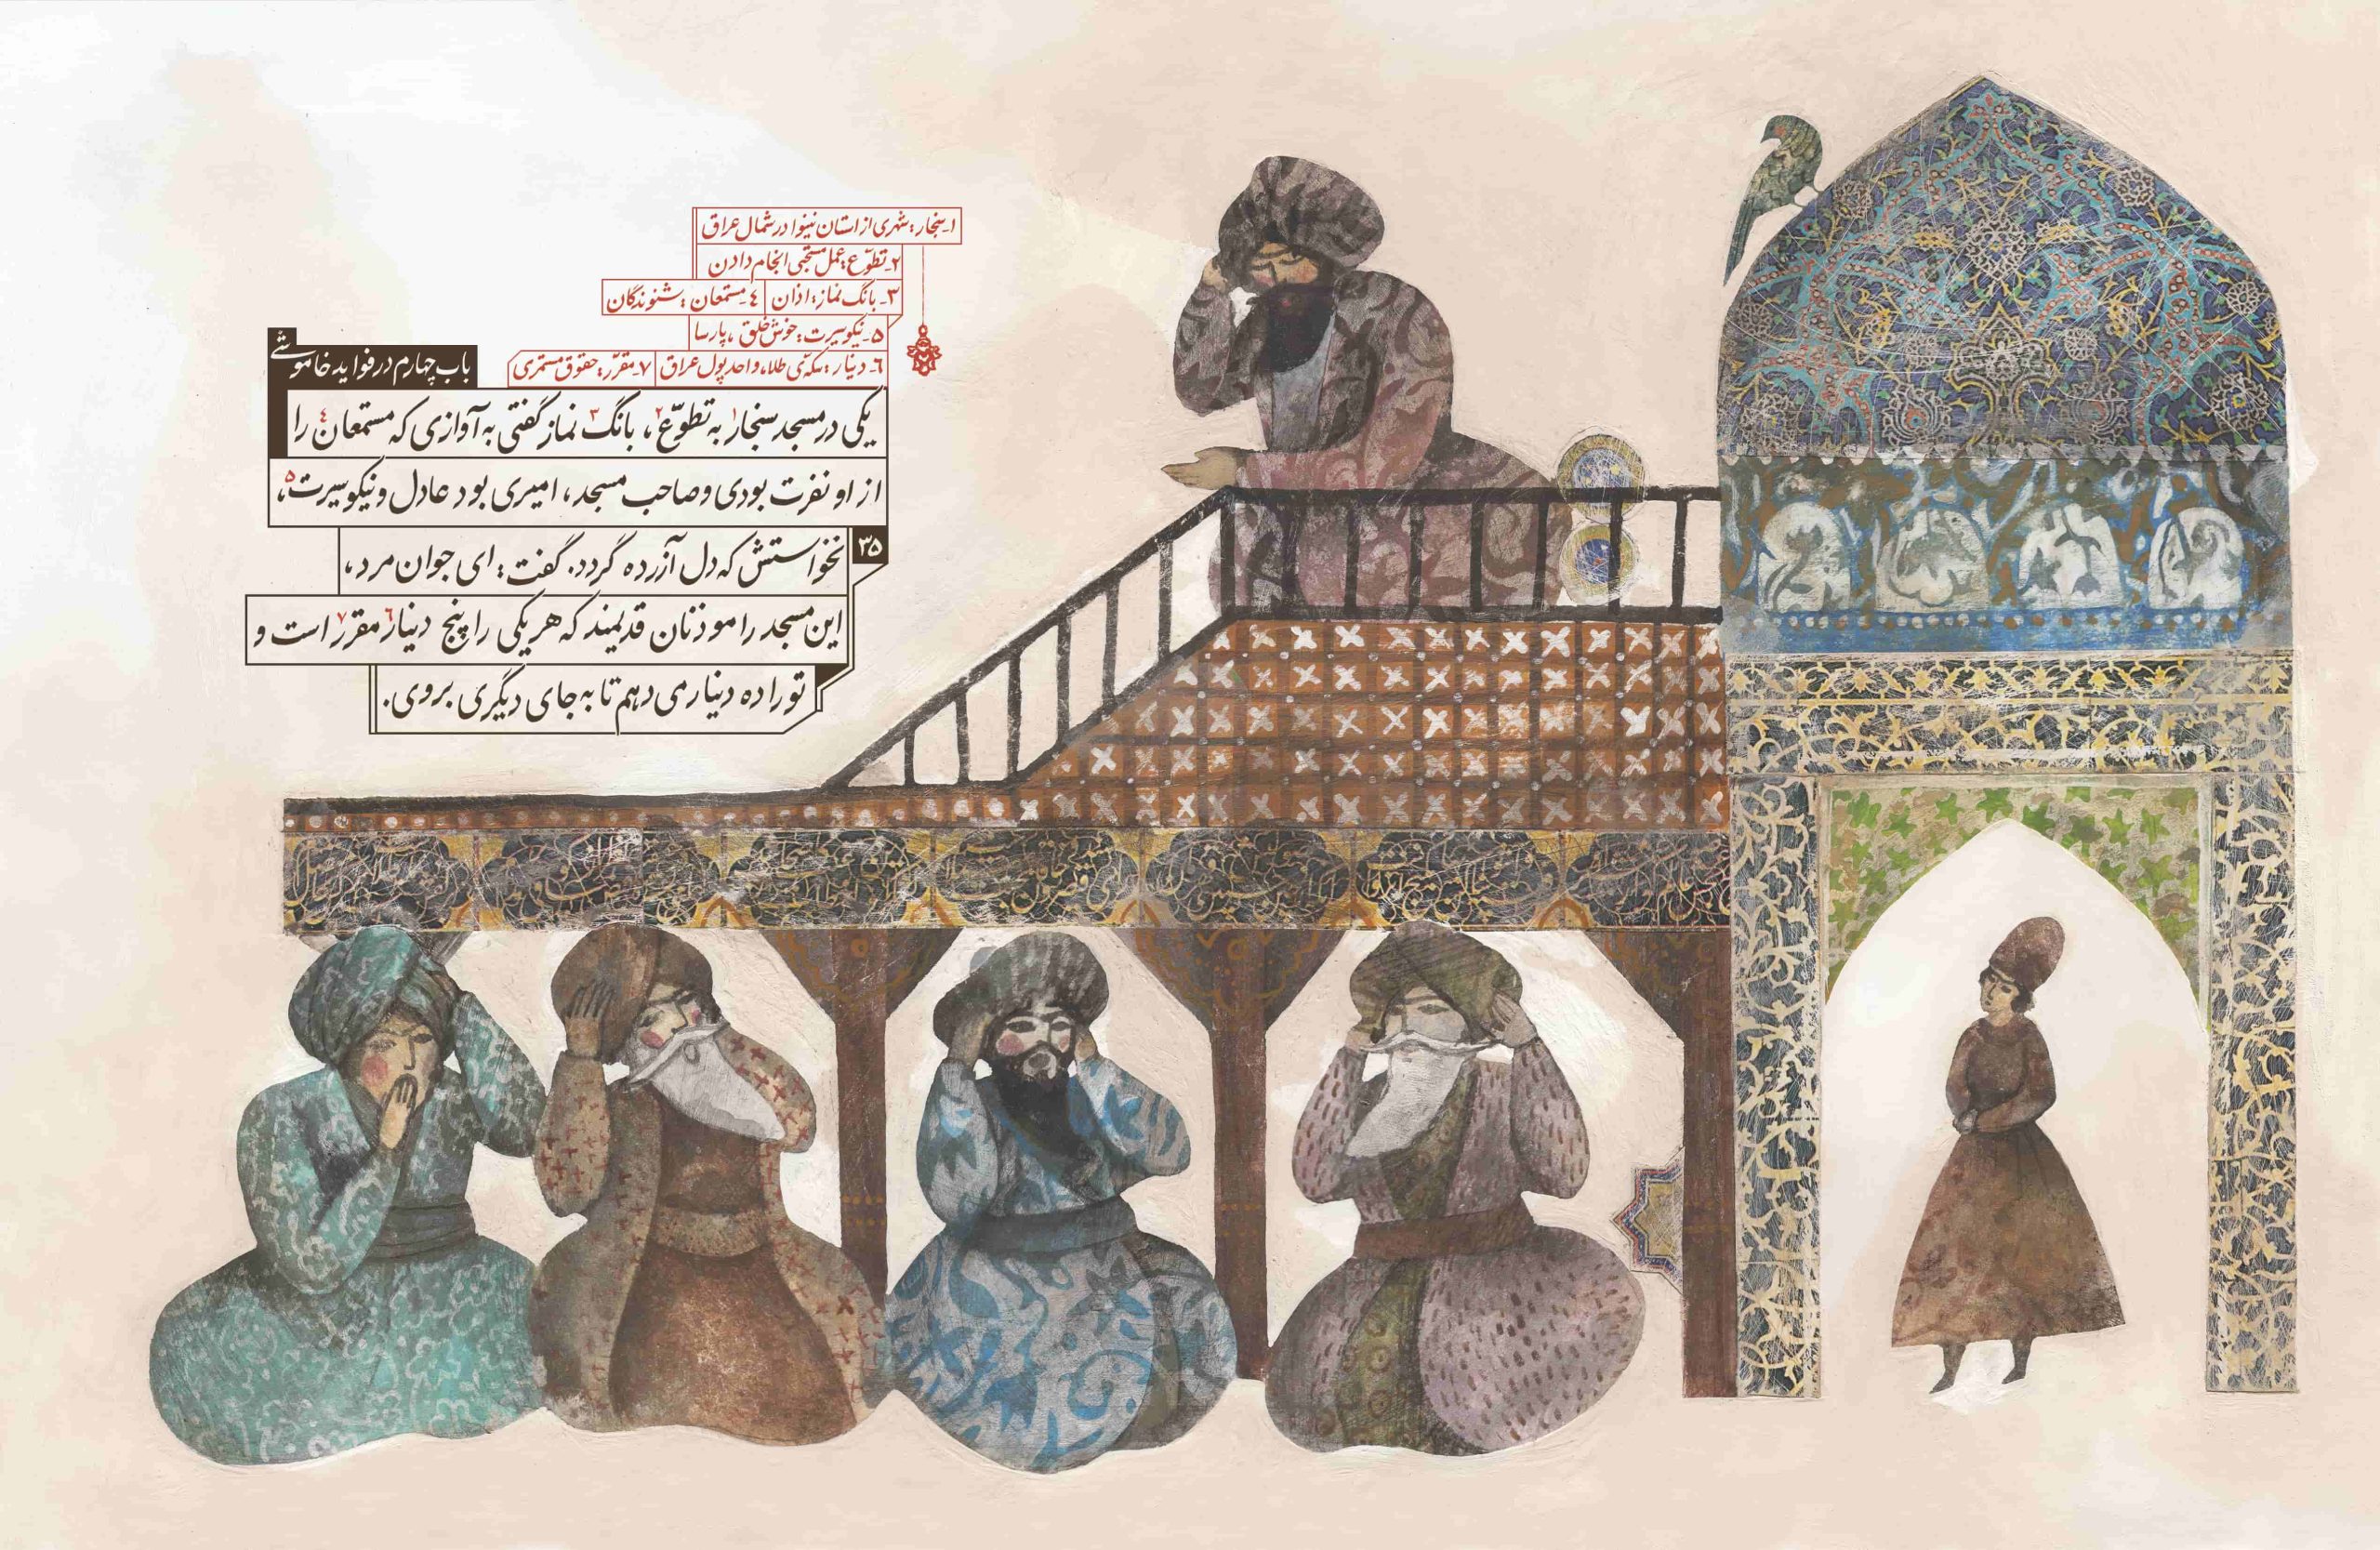 ۱ـ سنجار: شهری از استان نینوا در شمال عراق
۲ـ تطوّع: عمل مستحبی انجام دادن
۳ـ بانگ نماز: اذان ۴ـ مستمعان: شنوندگان
۵ـ نیکوسیرت: خوش‌خلق، پارسا
۶ـ دینار: سکه‌ی طلا، واحد پول عراق ۷ـ مقرّر: حقوق مستمری
باب چهارم در فواید خاموشی
یکی در مسجد سنجار۱ به تطوّع۲، بانگ۳ نماز گفتی به آوازی که مستمعان۴ را
از او نفرت بودی و صاحب مسجد، امیری بود عادل و نیکوسیرت۵،
۳۵
نخواستش که دل آزرده گردد. گفت: ای جوان‌مرد،
این مسجد را موذنان قدیمند که هر یکی را پنج دینار۶ مقرر۷ است و
تو را ده دینار می‌دهم تا به جای دیگری بروی.